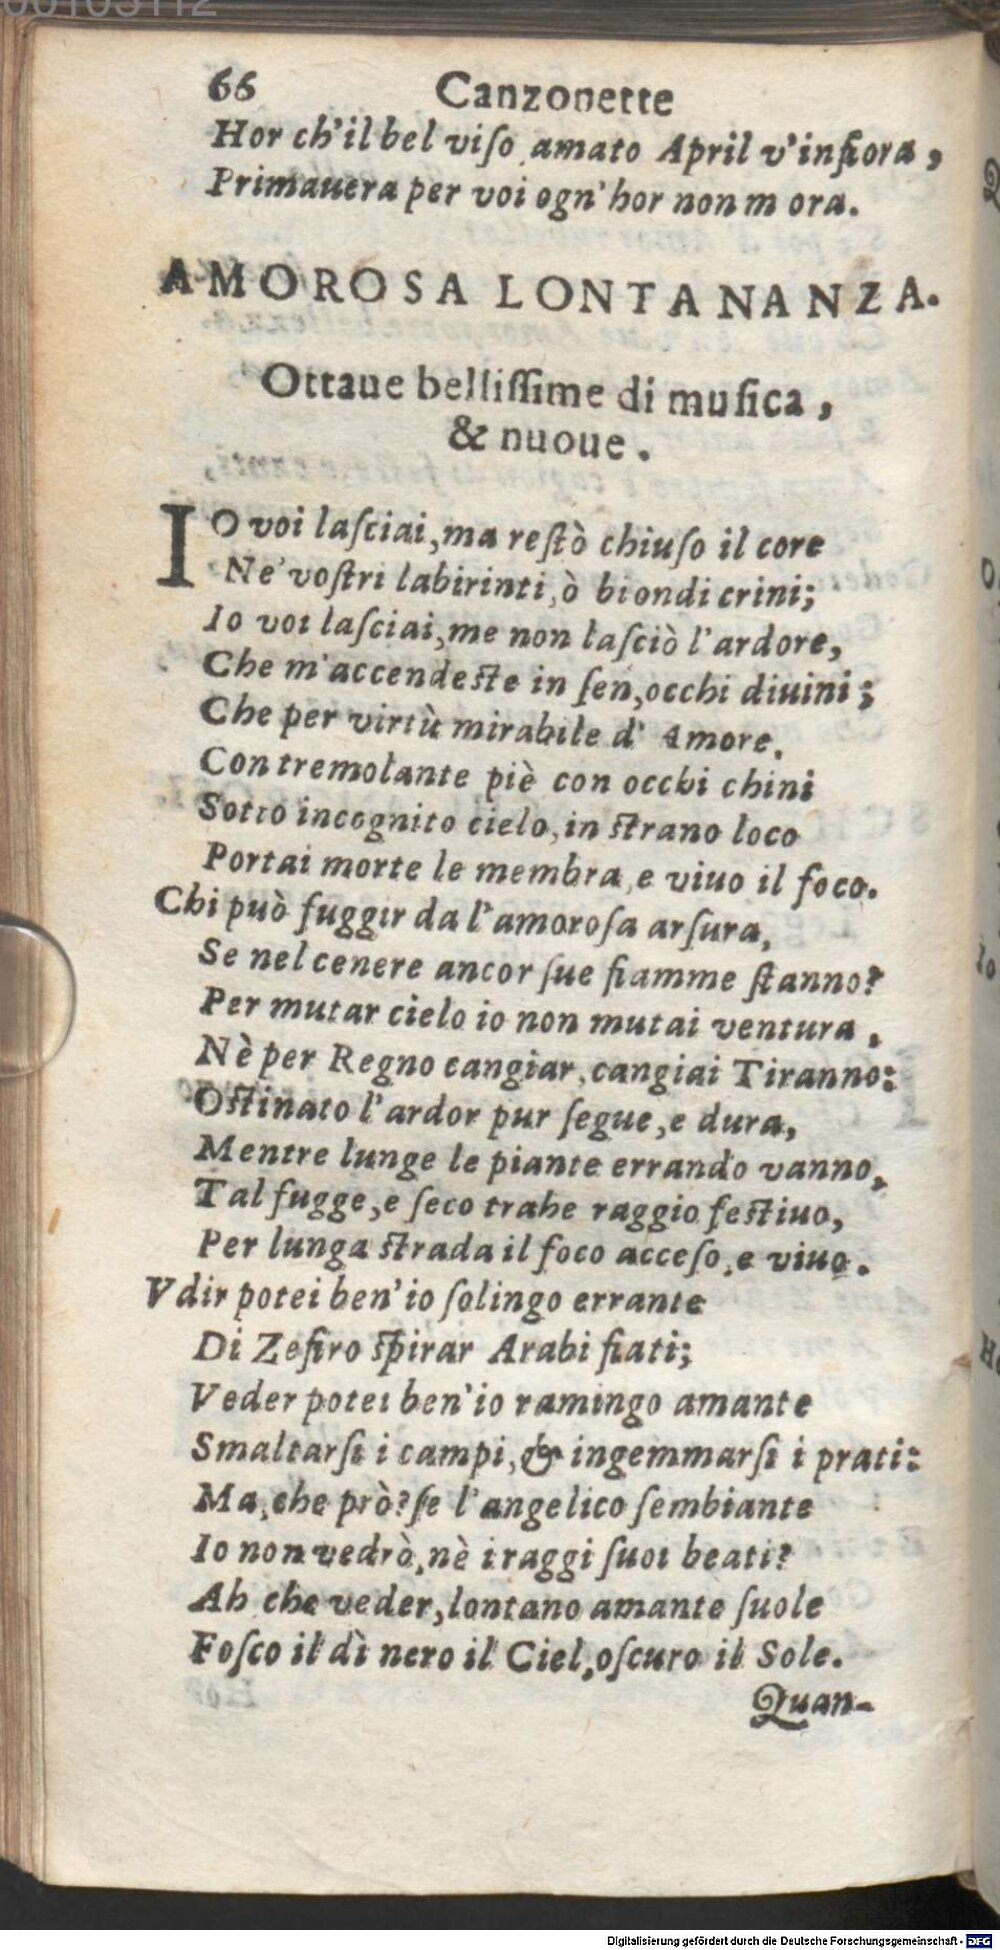 00105112
66 Canzonette
Hor ch'il bel viſo amato April v'infiora,
Primauera per voi ogn'hor non m ora.
AMOROSA LONTANANZA.
Ottaue belliſſime di muſica,
& nuoue.
IO voi laſciai, ma reſtò chiuſo il core
Ne' voſtri labirinti, ò biondi crini;
Io voi laſciai, me non laſciò l'ardore,
Che m'accendeſte in ſen, occhi diuini;
Che per virtù mirabile d' Amore.
Con tremolante piè con occhi chini
Sotto incognito cielo, in ſtrano loco
Portai morte le membra, e viuo il foco.
Chi può fuggir da l'amoroſa arſura,
Se nel cenere ancor ſue fiamme ſtanno?
Per mutar cielo io non mutai ventura,
Nè per Regno cangiar, cangiai Tiranno:
Oſtinato l'ardor pur ſegue, e dura,
Mentre lunge le piante errando vanno,
Tal fugge, e ſeco trahe raggio feſtiuo,
Per lunga ſtrada il foco acceſo, e viuo.
Vdir potei ben'io ſolingo errante
Di Zefiro ſpirar Arabi fiati;
Veder potei ben'io ramingo amante
Smaltarſi i campi, & ingemmarſi i prati:
Ma, che prò? ſe l'angelico ſembiante
Io non vedrò, nè i raggi ſuoi beati?
Ah che veder, lontano amante ſuole
Foſco il dì nero il Ciel, oſcuro il Sole.
Quan-
Digitalisierung gefördert durch die Deutsche Forschungsgemeinschaft - DFG